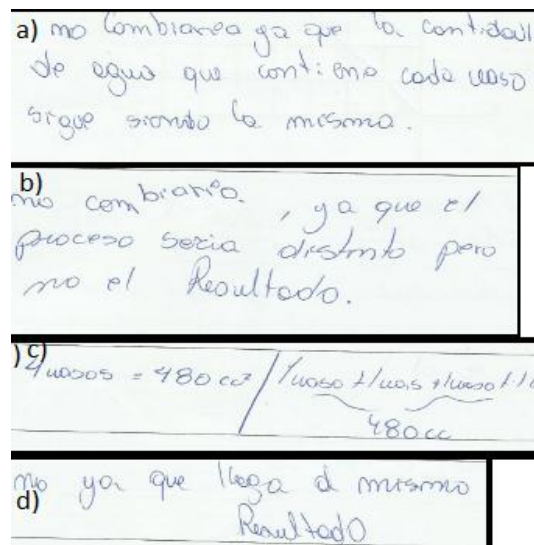 a) no Cambiarea ya que la cantidad
de agua que contiene cada vaso
sigue siendo la misma.
b)
no cambiaria. , ya que el
proceso seria distinto pero
no el Resultado.
) c)
4 vasos = 480 cc / 1 vaso + 1 vas + 1 vaso + 1
480 cc
no ya que llega al mismo
d)
Resultado